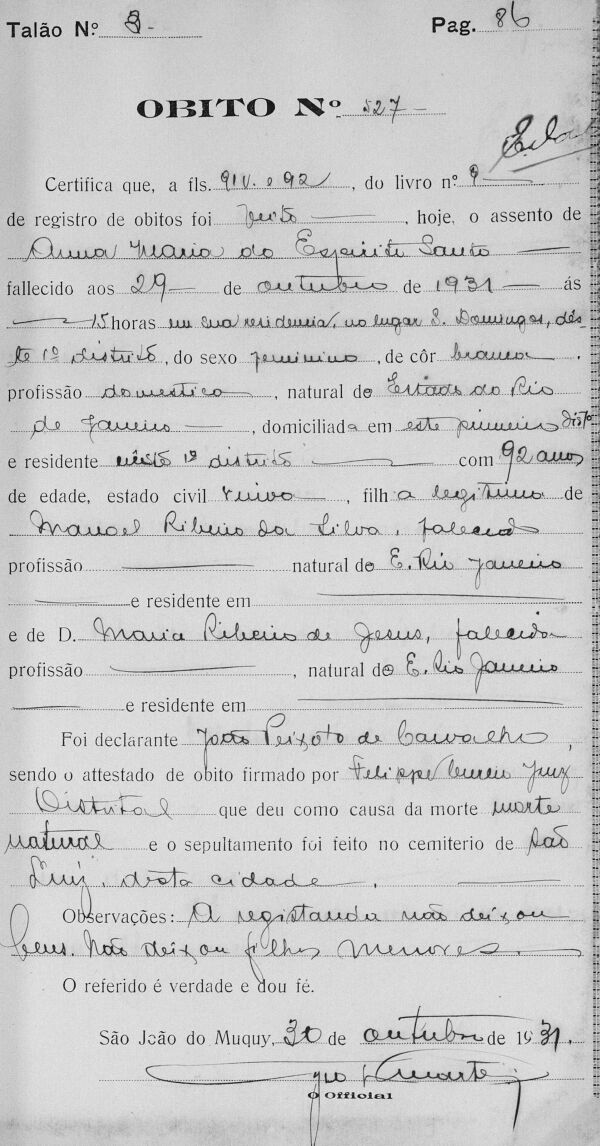 Talão N.º 8 - Pag. 86
OBITO Nº 527 -
Certifica que, a fls. 91V. e 92, do livro n.º 9
de registro de obitos foi feito, hoje, o assento de
Anna Maria do Espirito Santo
fallecido aos 29 de outubro de 1931 ás
15 horas em sua residencia, no lugar S. Domingos, dês-
te 1º districto, do sexo feminino, de côr branca.
profissão domestica, natural do Estado do Rio
de Janeiro, domiciliada em este primeiro disto
e residente nêste 1º districto com 92 anos
de edade, estado civil viuva, filha legitima de
Manoel Ribeiro da Silva, falecido
profissão natural do E. Rio Janeiro
e residente em
e de D. Maria Ribeiro de Jesus, falecida
profissão, natural do E. Rio Janeiro
e residente em
Foi declarante João Peixoto de Carvalho,
sendo o attestado de obito firmado por Felippe Juiz
Distrital que deu como causa da morte morte
natural e o sepultamento foi feito no cemiterio de São
Luiz, desta cidade.
Observações: A registanda não deixou
bens. Não deixou filhos menores.
O referido é verdade e dou fé.
São João do Muquy, 30 de outubro de 1931.
O Official